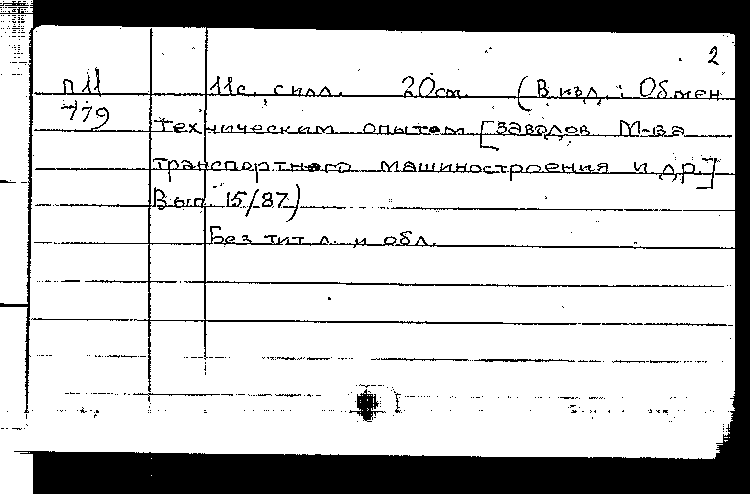 2
П11 11с. с илл. 20см. (В изд.: Обмен
779 техническим опытом [заводов М-ва
транспортного машиностроения и др.]
Вып. 15/87)
Без тит л. и обл.